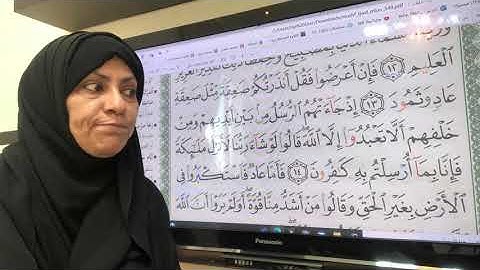 ٱلْعَلِيمِ ١٢ فَإِنْ أَعْرَضُوا۟ فَقُلْ أَنذَرْتُكُمْ صَـٰعِقَةً مِّثْلَ صَـٰعِقَةِ
عَادٍ وَثَمُودَ ١٣ إِذْ جَآءَتْهُمُ ٱلرُّسُلُ مِنۢ بَيْنِ أَيْدِيهِمْ وَمِنْ
خَلْفِهِمْ أَلَّا تَعْبُدُوٓا۟ إِلَّا ٱللَّهَ قَالُوا۟ لَوْ شَآءَ رَبُّنَا لَأَنزَلَ مَلَـٰٓئِكَةً
فَإِنَّا بِمَآ أُرْسِلْتُم بِهِۦ كَـٰفِرُونَ ١٤ فَأَمَّا عَادٌ فَٱسْتَكْبَرُوا۟ فِى
ٱلْأَرْضِ بِغَيْرِ ٱلْحَقِّ وَقَالُوا۟ مَنْ أَشَدُّ مِنَّا قُوَّةً أَوَلَمْ يَرَوْا۟ أَنَّ ٱللَّهَ
Panasonic